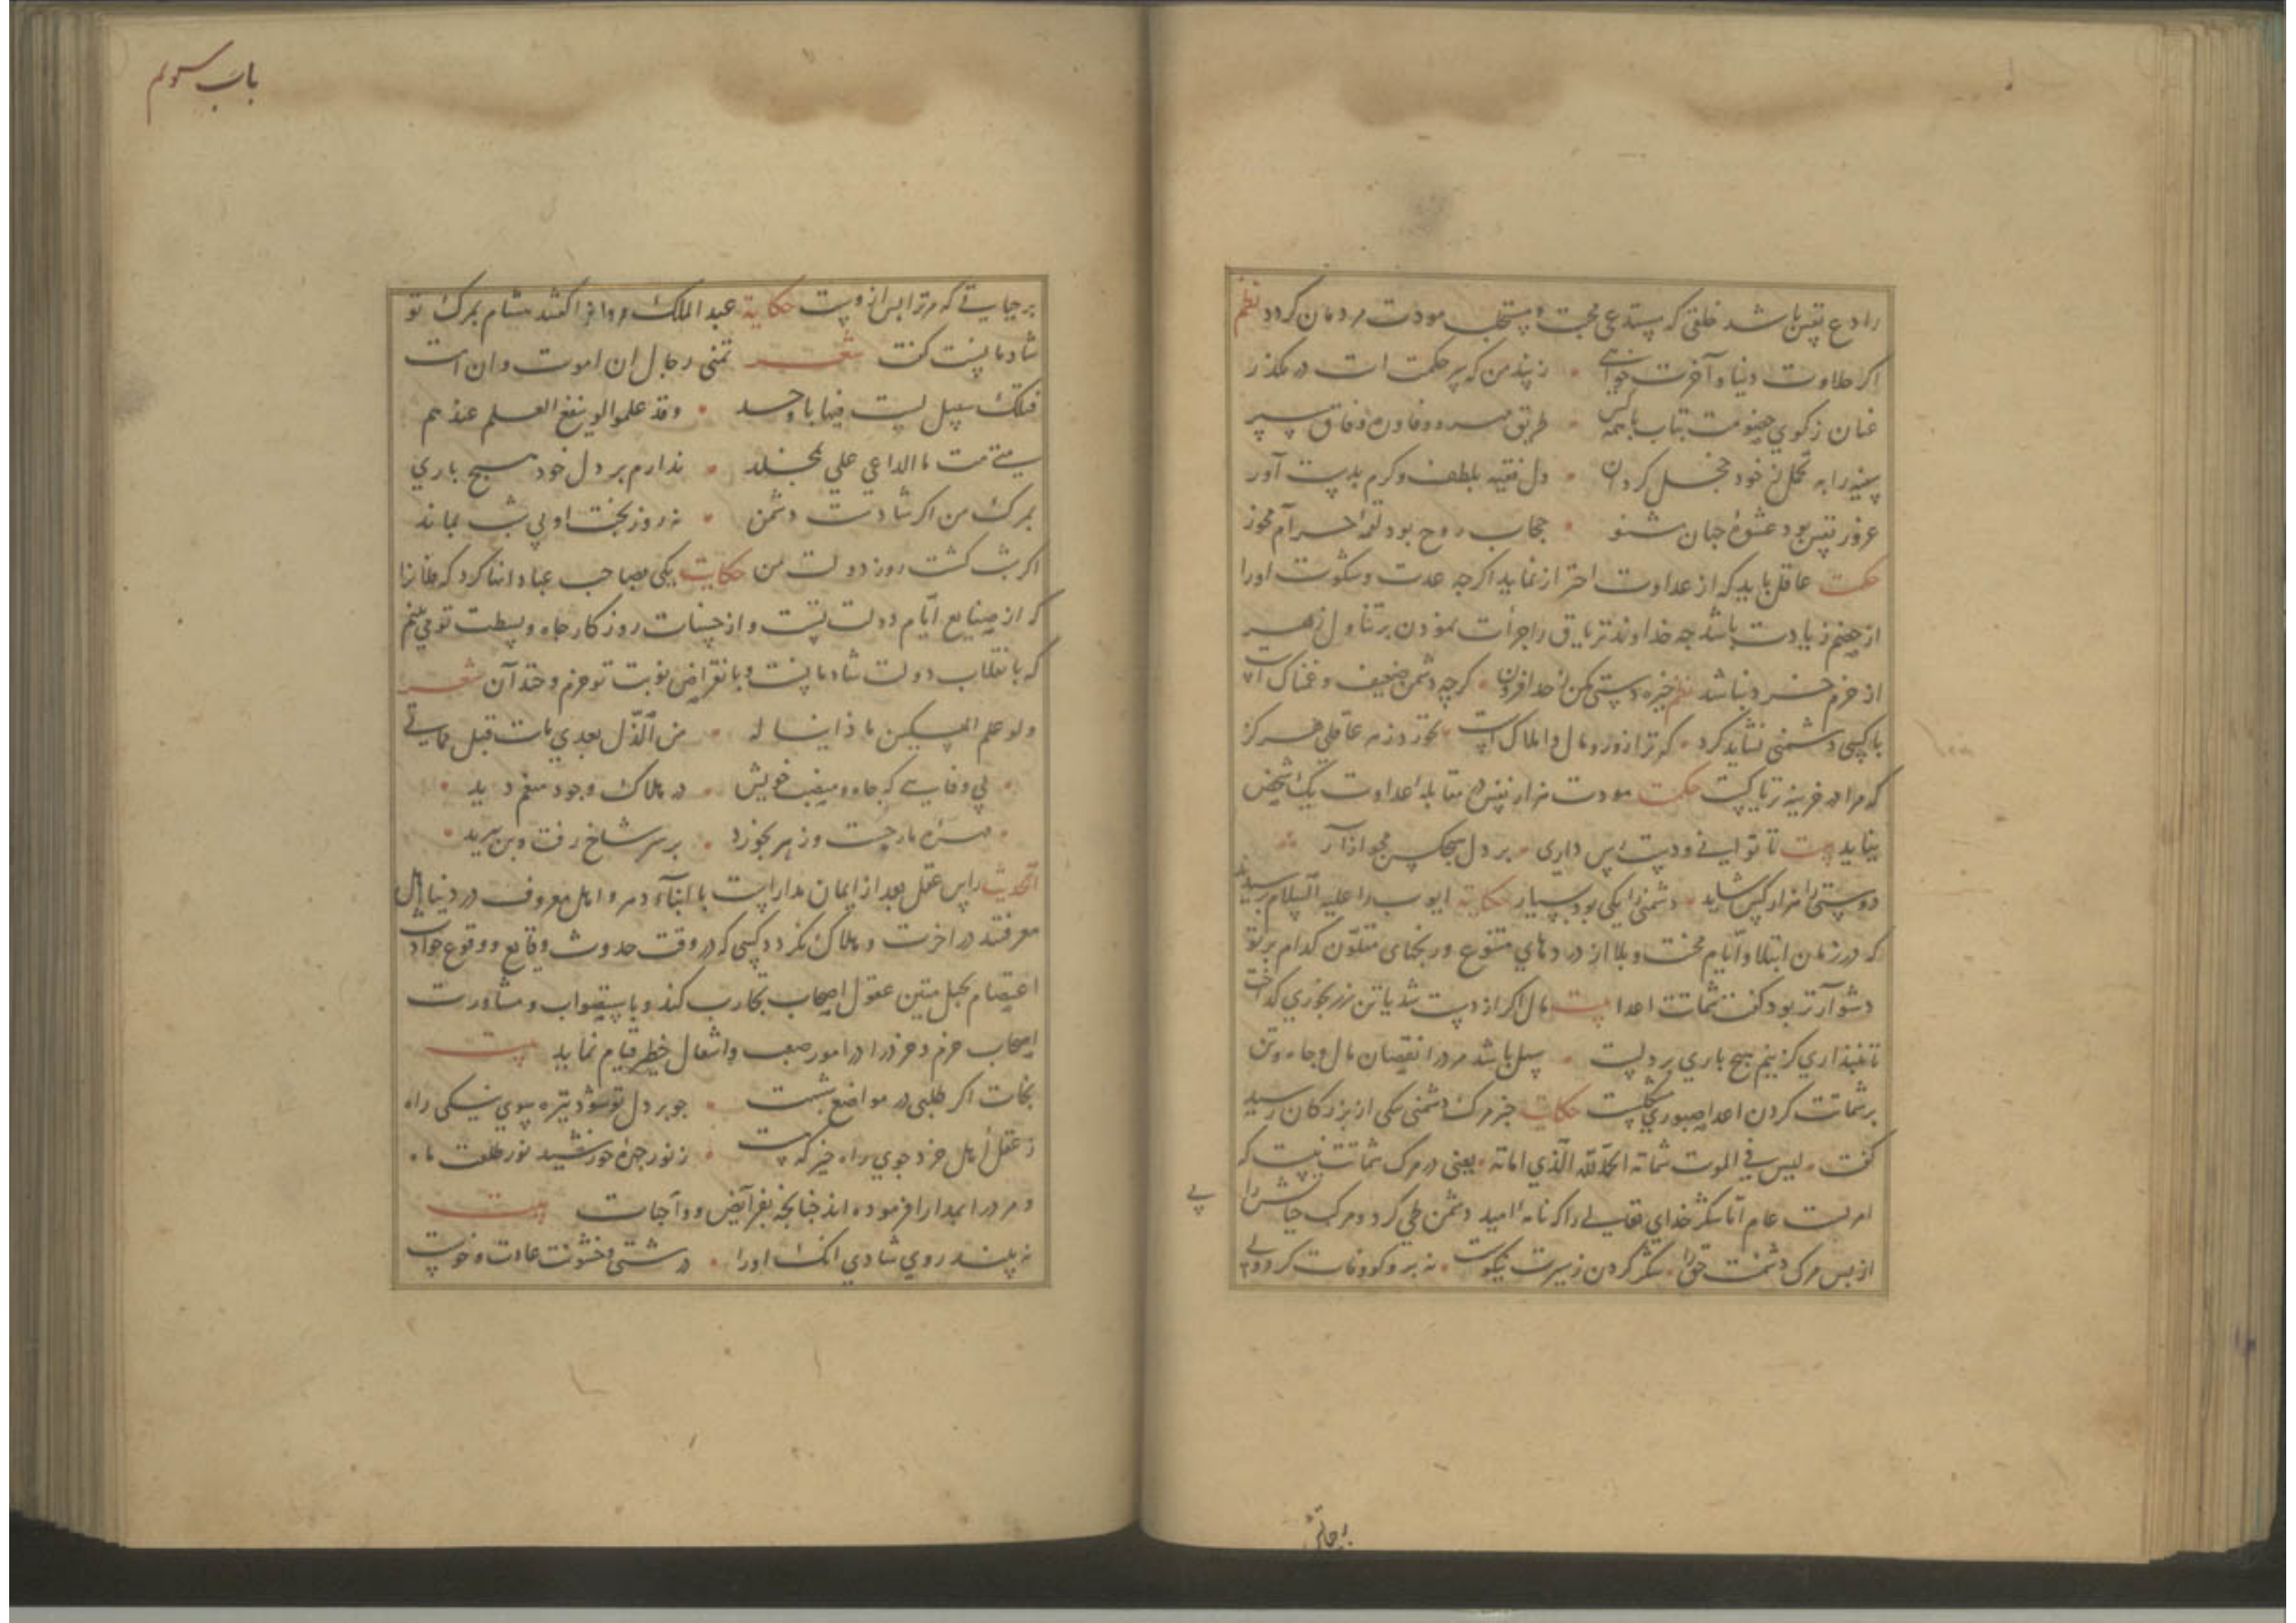 را دع نفس باشد خلقی که مستدعی محبت و مستجلب مودت مردمان کردد نظم
اکر حلاوت دنیا و آخرت خواهی • ز پند من که پر حکمت است در مکذر
عنان ز کوی خصومت بتاب با همه کس • طریق مهر و وفا و ره وفاق سپر
سفیه را به تحمل ز خود خجل کردان • دل فقیه بلطف و کرم بدست آور
غرور نفس بود عشوهٔ جهان مشنو • حجاب روح بود لقمهٔ حرام مخور
حکمت عاقل باید که از عداوت احتراز نماید اکرچه عدت و شکوت او را
از خصم زیادت باشد چه خداوند تریاق را جرأت نمودن بر تناول زهر
از حزم خرد نباشد نظم خیره دستی مکن ز حد افزون • کرچه دشمن ضعیف و غمناک است
با کسی دشمنی نشاید کرد • که ترا زور و مال و املاک است • نخورد زهر عاقلی هرکز
که مرا در خزینه تریاکست حکمت مودت هزار نفس در مقابلهٔ عداوت یک شخص
نیاید بیت تا توانی دوست بس داری • بر دل هیچکس مجو آزار
دوستی را هزار کس شاید • دشمنی را یکی بود بسیار حکایة ایوب را علیه السلام پرسیدند
که در زمان ابتلا و ایام محنت و بلا از دردهای متنوع و رنجهای متلون کدام بر تو
دشوارتر بود کفت شماتت اعدا بیت مال اکر از دست شد یا تن ز رنجوری کداخت
تا نپنداری کزینم هیچ باری بر دلست • سهل باشد مرد را نقصان مال و جاه و تن
بر شماتت کردن اعدا صبوری مشکلست حکایت خبر مرک دشمنی یکی از بزرکان رسید
کفت • لیس فی الموت شماتة الحمد لله الذی اماته • یعنی در مرک شماتت نیست که
امریست عام اما شکر خدای تعالی را که نامهٔ امید دشمن طی کرد و مرک حیاتش را پی
از پس مرک دشمنت حق را • شکر کردن ز سیرت نیکوست • نه برو کو وفات کرد ولی
بر حیاتی
باب سوم
بر حیاتی که مر ترا پس ازوست حکایة عبد الملک مروان را کفتند هشام بمرک تو
شادمانست کفت شعر تمنی رجال ان اموت و ان امت
فتلک سبیل لست فیها باوحد • وقد علموا لو ینفع العلم عندهم
متی مت ما الداعی علی بمخلد • ندارم بر دل خود هیچ باری
بمرک من اکر شادست دشمن • نه روز بخت او بی شب بماند
اکر شب کشت روز دولت من حکایت یکی بصاحب عباد انها کرد که فلانرا
که از صنایع ایام دولت تست و از حسنات روزکار جاه و بسطت تو می بینم
که بانقلاب دولت شادمانست و بانقراض نوبت تو خرم و خندان شعر
ولو علم المسکین ماذا یناله • من الذل بعدی مات قبل مماتی
• بی وفایی که جاه و منصب خویش • در هلاک وجود منعم دید •
• مهره مار جست و زهر بخورد • بر سر شاخ رفت و بن ببرید •
الحدیث راس عقل بعد از ایمان مداراست با ابناء دهر و اهل معروف در دنیا اهل
معرفتند در اخرت و هلاک نکردد کسی که در وقت حدوث وقایع و وقوع حوادث
اعتصام بحبل متین عقول اصحاب تجارب کند و باستصواب و مشاورت
اصحاب حزم و خرد در امور صعب و اشغال خطیر قیام نماید بیت
نجات اکر طلبی در مواضع بهشت • چو بر دل تو شود تیره سوی نیکی راه
ز عقل اهل خرد جوی راه خیر که هست • ز نور چهرهٔ خورشید نور طلعت ماه
و مر در ابمدارا فرموده اند چنانچه بفرایض و واجبات بیت
نه بیند روی شادی انک او را • درشتی و خشونت عادت و خوست